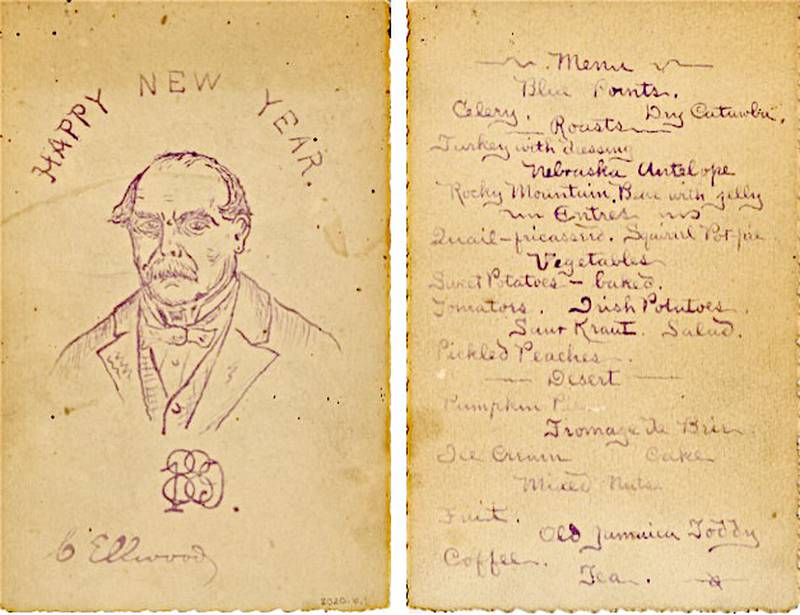 HAPPY NEW YEAR.
C Ellwood
2020.4.1
Menu
Blue Points.
Celery. Dry Catawba.
Roasts
Turkey with dressing
Nebraska Antelope
Rocky Mountain Bear with jelly
Entres
Quail-fricasseed. Squirrel Pot-pie
Vegetables
Sweet Potatoes - baked.
Tomatoes. Irish Potatoes.
Saur Kraut. Salad.
Pickled Peaches.
Desert
Pumpkin Pie
Fromage de Brie
Ice Cream Cake
Mixed Nuts
Fruit.
Old Jamaica Toddy
Coffee.
Tea.